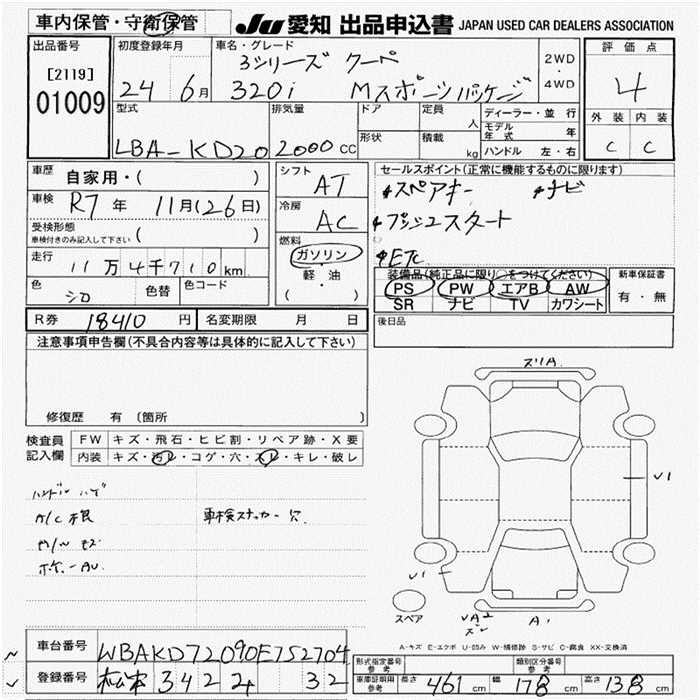 車内保管・守衛保管
JU 愛知 出品申込書 JAPAN USED CAR DEALERS ASSOCIATION
出品番号
[2119]
01009
初度登録年月
24 6月
車名・グレード
3シリーズ クーペ
320i Mスポーツパッケージ
2WD
・
4WD
評価点
4
外装 内装
C C
型式
LBA-KD20
排気量
2000cc
ドア
定員
人
形状
積載
kg
ディーラー・並行
モデル年式 年
ハンドル 左・右
車歴
自家用・( )
車検
R7年 11月(26日)
受検形態
車検付きのみ記入して下さい ( )
走行
11万4千710km
色
シロ
色替
色コード
シフト
AT
冷房
AC
燃料
ガソリン
・
軽・油
( )
セールスポイント(正常に機能するものに限ります)
スペアキー ナビ
プッシュスタート
ETC
装備品(純正品に限り○をつけてください)
PS PW エアB AW
SR ナビ TV カワシート
新車保証書
有・無
後日品
R券 18410円 名変期限 月 日
注意事項申告欄(不具合内容等は具体的に記入して下さい)
修復歴 有 〔箇所 〕
検査員
記入欄
FW キズ・飛石・ヒビ割・リペア跡・X要
内装 キズ・汚レ・コゲ・穴・スレ・キレ・破レ
ハンドル ハゲ
A/C 根
車検ステッカー 穴
スリA
V1
V1
スペア
VA2
A1
A-キズ E-エクボ U-凹み W-補修跡 S-サビ C-腐食 XX-交換済
車台番号 WBAKD72090E752704
登録番号 松本 3422 32
形式指定番号
参考
類別区分番号
参考
車庫証明用
参考
長さ 461cm 幅 178cm 高さ 138cm